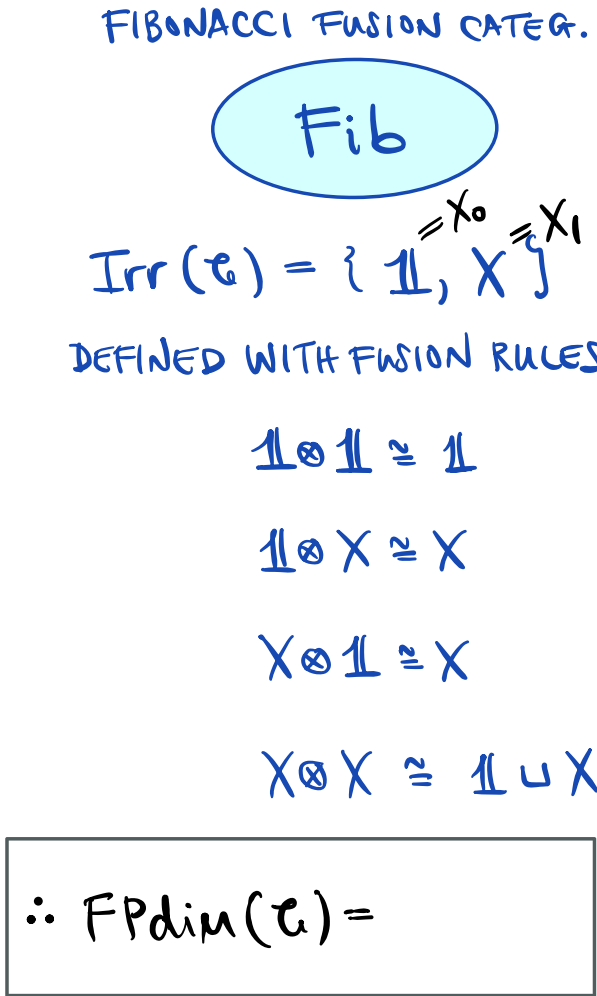 FIBONACCI FUSION CATEG.
Fib
=X₀ =X₁
Irr(𝒞) = { 𝟙, X }
DEFINED WITH FUSION RULES
𝟙 ⊗ 𝟙 ≅ 𝟙
𝟙 ⊗ X ≅ X
X ⊗ 𝟙 ≅ X
X ⊗ X ≅ 𝟙 ⊔ X
∴ FPdim(𝒞) =